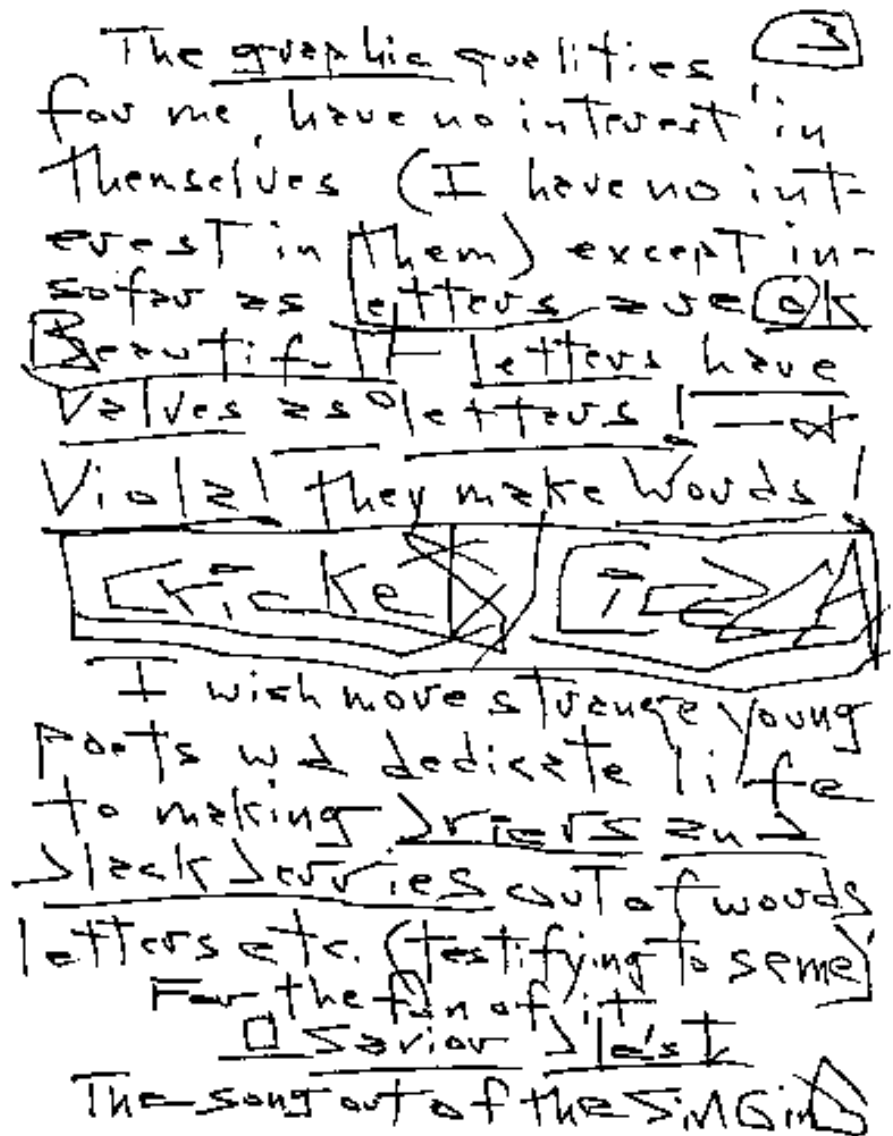 The graphic qualities 3
for me, have no interest in
themselves (I have no int-
erest in them) except in-
sofar as letters are ok
Beautiful — letters have
Values as letters! — &
Viola! they make Words!
Cricket
I wish more strange young
Poets wd dedicate life
to making briers and
black berries out of words
letters etc. (testifying to same)
For the fun of it
O Savior
The song out of the SiNGing